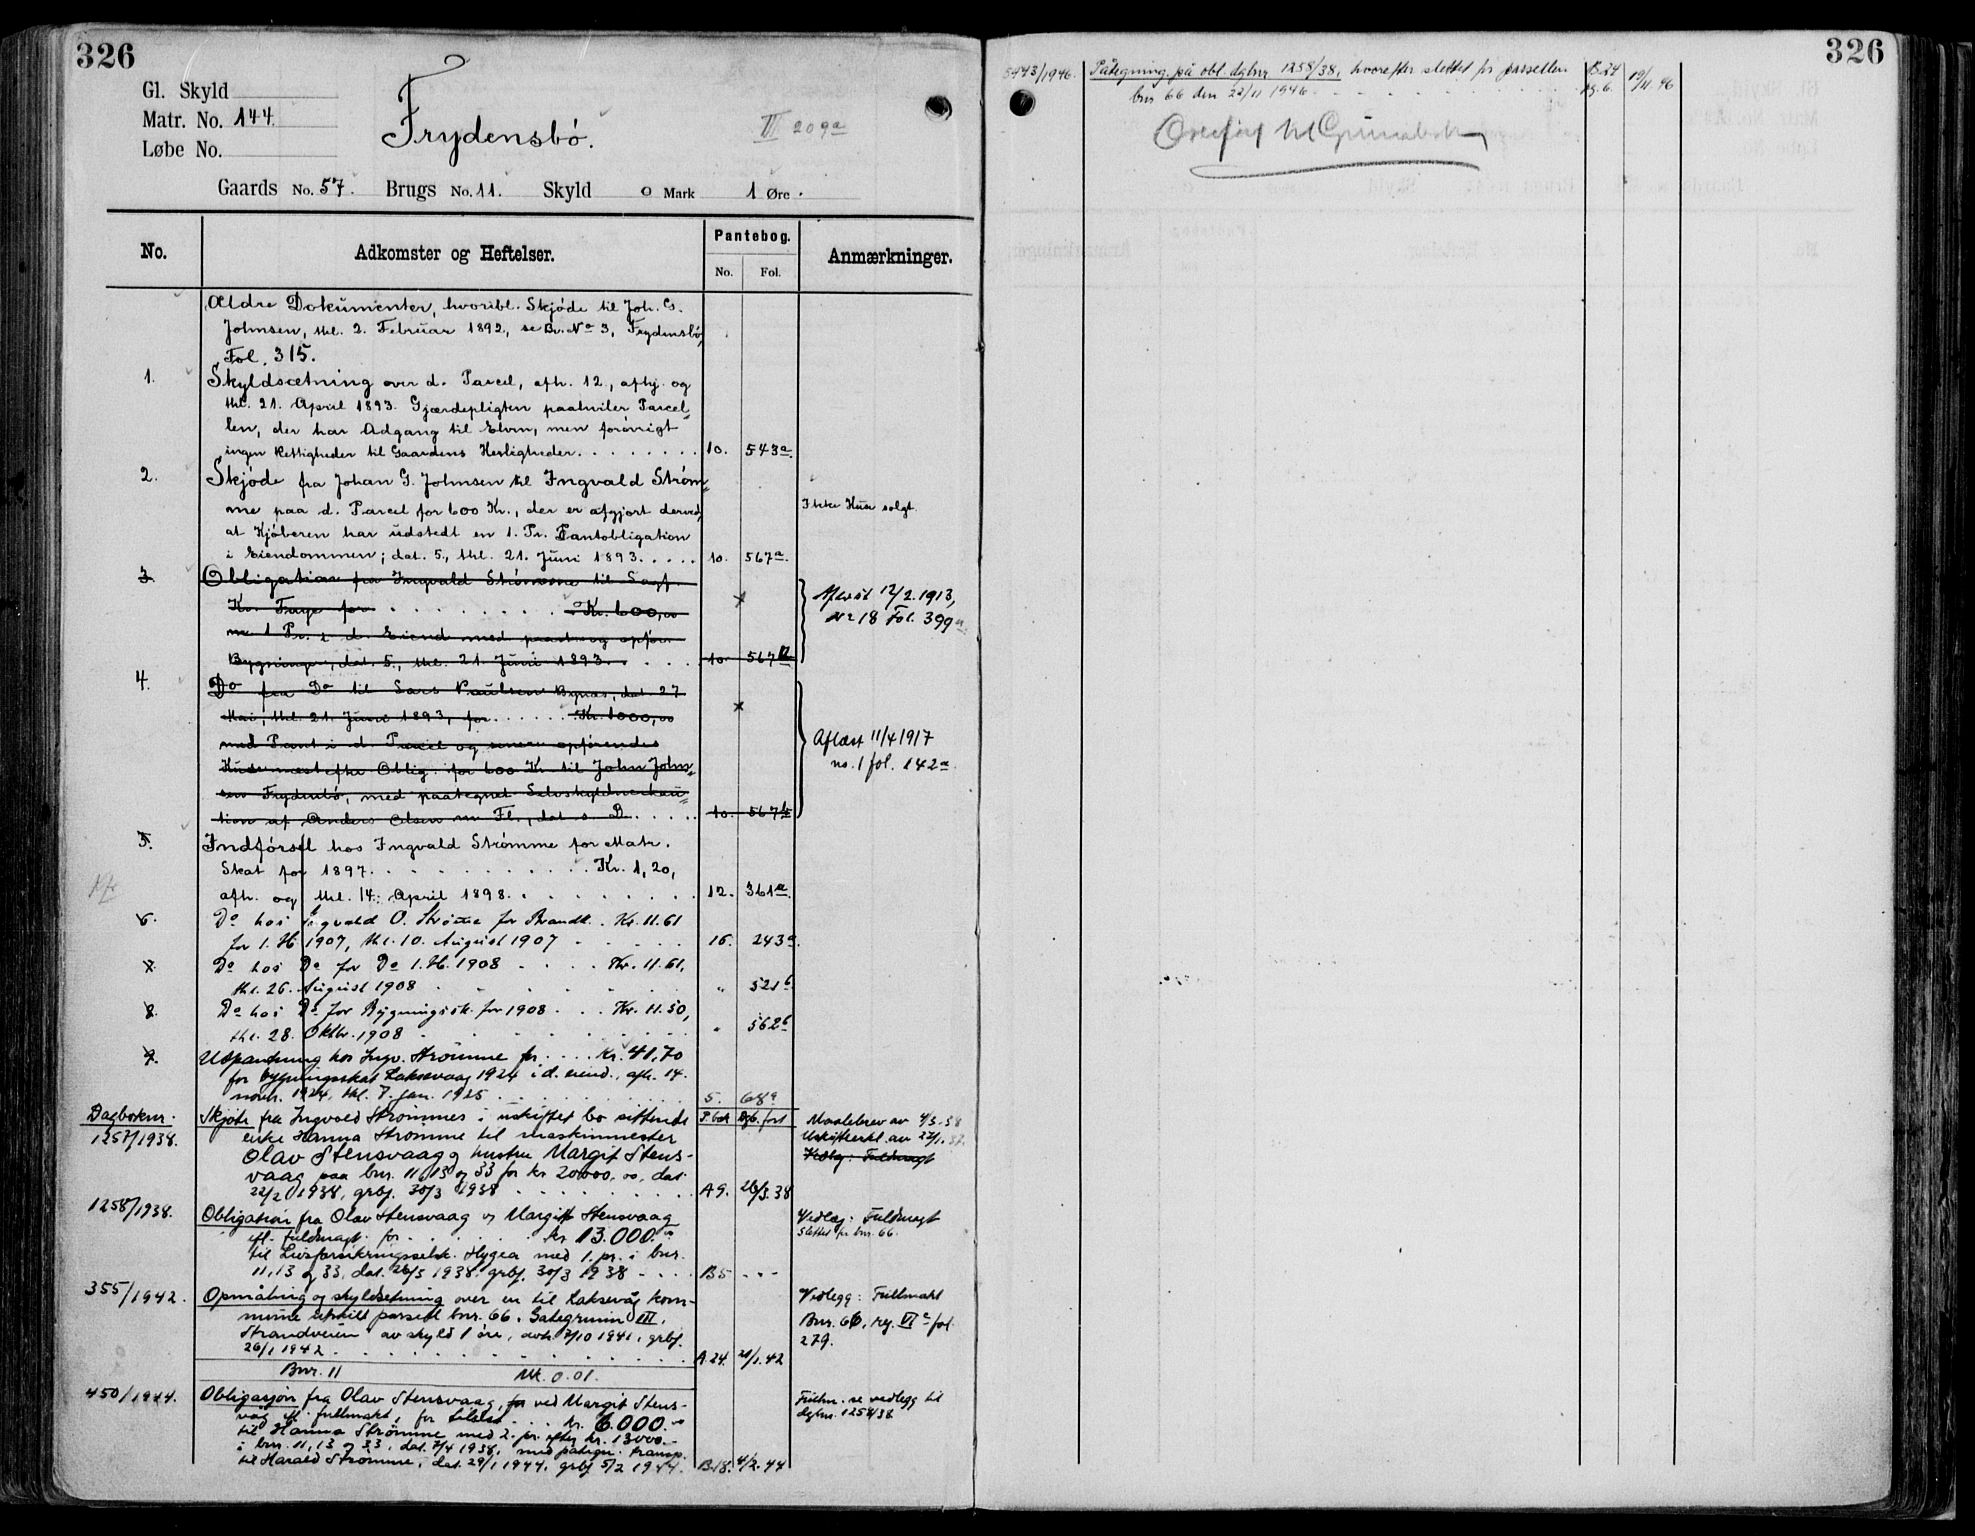 326
Gl. Skyld
Matr. No. 144.
Løbe No.
Frydensbö.
III 209a
Gaards No. 57. Brugs No. 11. Skyld 0 Mark 1 Øre.
No. Adkomster og Heftelser. Pantebog. No. Fol. Anmærkninger.
Ældre Dokumenter, hvoribl. Skjøde til Joh. G.
Johnsen, thl. 2. Februar 1892, se Br. No 3, Frydensbö,
Fol. 315.
1. Skyldsætning over d. Parcel, afh. 12., afhj. og
thl. 21. April 1893. Gjærdepligten paahviler Parcel-
len, der har Adgang til Elven, men forøvrigt
ingen Rettigheder til Gaardens Herligheder. 10. 543a.
2. Skjøde fra Johan G. Johnsen til Ingvald Strøm-
me paa d. Parcel for 600 Kr., der er afgjort derved,
at Kjøberen har udstedt en 1. Pr. Pantobligation
i Eiendommen; dat. 5., thl. 21. Juni 1893. 10. 567a.
Ikke Huse solgt.
3. Obligation fra Ingvald Strømme til Sagf.
Kr. Faye for Kr. 600,00
m. 1 Pr. i d. Eiend med paast. og opfør.
Bygninger, dat. 5., thl. 21. Juni 1893. 10. 567
Aflæst 12/2. 1913,
No 18 Fol. 399a.
4. Do fra Do til Lars Paulsen Bynes, dat. 27
Mai, thl. 21. Juni 1893, for Kr. 1000,00
med Pant i d. Parcel og senere opførendes
Huse næst efter Oblig. for 600 Kr. til John John-
sen Frydenbö, med paategnet Selvskyldnerkau-
tion af Anders Olsen m Fl., dat. s. D. 10. 567b
Aflæst 11/4 1917
no. 1 fol. 142a.
5. Indførsel hos Ingvald Strømme for Matr.
Skat for 1897. Kr. 1,20,
afh. og thl. 14. April 1898. 12. 361a.
6. Do hos Ingvald O. Strømme for Brandk. Kr. 11.61
for 1. H. 1907, thl. 10. August 1907 16. 243a.
7. Do hos Do for Do 1. H. 1908 Kr. 11.61,
thl. 26. August 1908 " 521b
8. Do hos Do for Bygningssk. for 1908 Kr. 11.50,
thl. 28. Oktbr. 1908 " 562b
9. Utpantning hos Ingv. Strømme for kr. 41,70
for bygningsskat Laksevaag 1924 i d. eiend., afh. 14.
novbr. 1924, thl. 7. jan. 1925 5. 68a
Dagboknr. Skjøte fra Ingvald Strømmes i uskiftet bo sittende P.bok Dgb.ført Maalebrev av 4/3-38
1257/1938. enke Hanna Strømme til maskinmester Uskifteerkl. av 27/1.37.
Olav Stensvaag og hustru Margit Stens- Vedlag: Fuldmagt
vaag paa bnr. 11, 13 og 33 for kr 20000,00, dat.
22/2 1938, grbf. 30/3 1938 A9. 26/3.38
1258/1938. Obligation fra Olav Stensvaag og Margit Stensvaag Vedlæg: Fuldmagt
ifl. fuldmagt for kr 13.000.00 Slettet for bnr. 66.
til Livsforsikringsselsk. Hygea med 1. pr. i bnr.
11, 13 og 33, dat. 26/3 1938. grbf. 30/3 1938 B5 - " -
355/1942. Opmåling og skyldsetning over en til Laksevåg kom- Vedlegg: Fullmakt
mune utskilt parsell bnr. 66. Gategrunn III, Bnr. 66, reg. VIa fol.
Strandveien av skyld 1 øre, avh. 7/10 1941, grbf. 279.
26/1 1942 A.24. 20/1.42
Bnr. 11 Mk. 0.01.
450/1944. Obligasjon fra Olav Stensvaag, for ved Margit Stens- Fullm. se vedlegg til
våg ifl. fullmakt, for kr. 6.000.00 dgbnr. 1258/38
til Hanna Strømme med 2. pr. efter kr. 13000.-
i bnr. 11, 13 og 33, dat. 7/4 1938, med påtegn. transp.
til Harald Strømme, dat. 29/1 1944, grbf 5/2 1944. B18. 4/2.44
326
5443/1946. Påtegning på obl. dgbnr. 1258/38, hvorefter slettet for parsellen B.24 19/11.46
bnr 66 den 22/11 1946. rg. 6.
Overført til Grunnbok